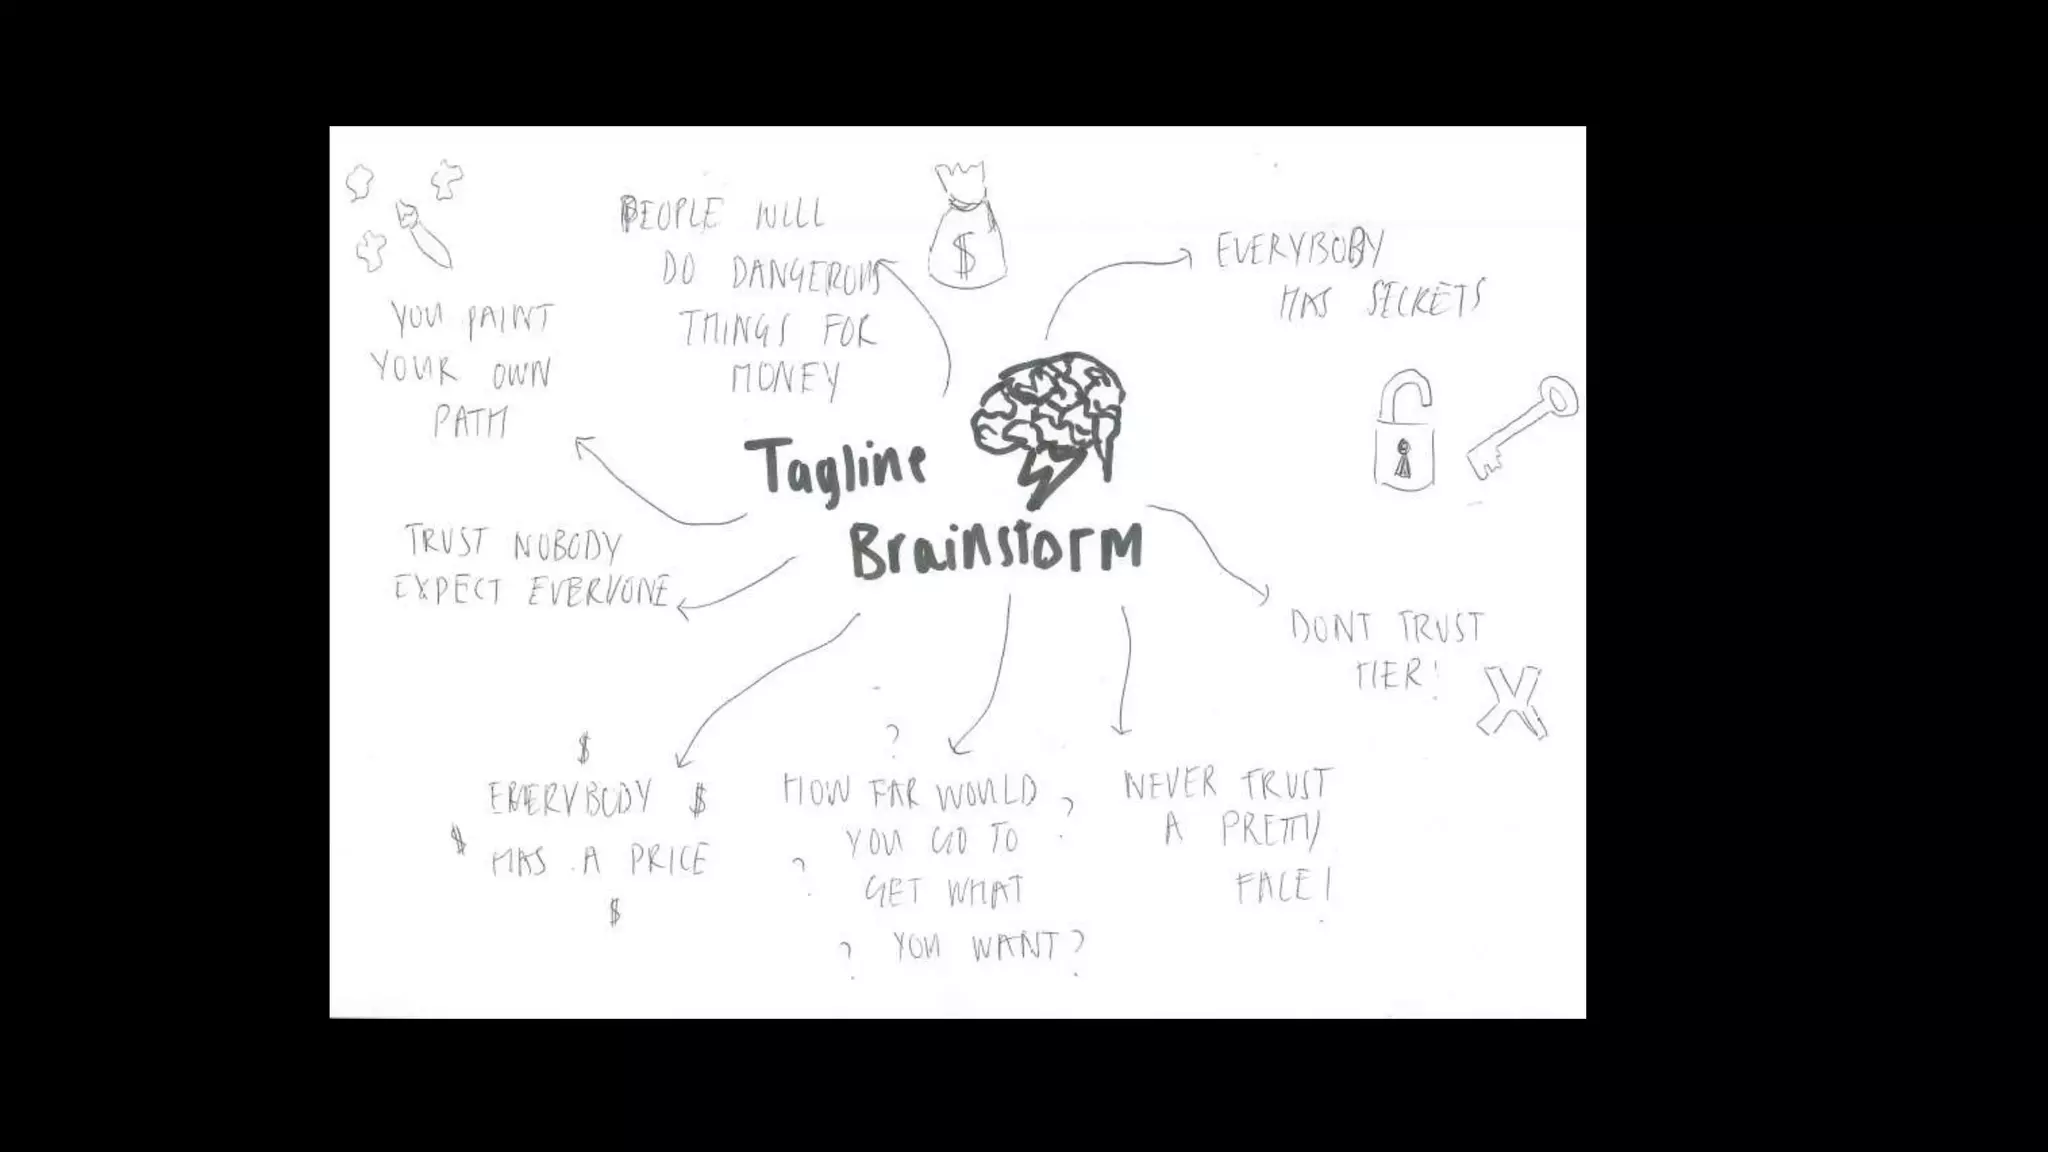 PEOPLE WILL
DO DANGEROUS
THINGS FOR
MONEY
$
EVERYBODY
HAS SECRETS
YOU PAINT
YOUR OWN
PATH
Tagline
Brainstorm
TRUST NOBODY
EXPECT EVERYONE
DONT TRUST
HER!
X
$
EVERYBODY $
$ HAS A PRICE
$
?
HOW FAR WOULD ?
YOU GO TO
? GET WHAT
? YOU WANT?
NEVER TRUST
A PRETTY
FACE!